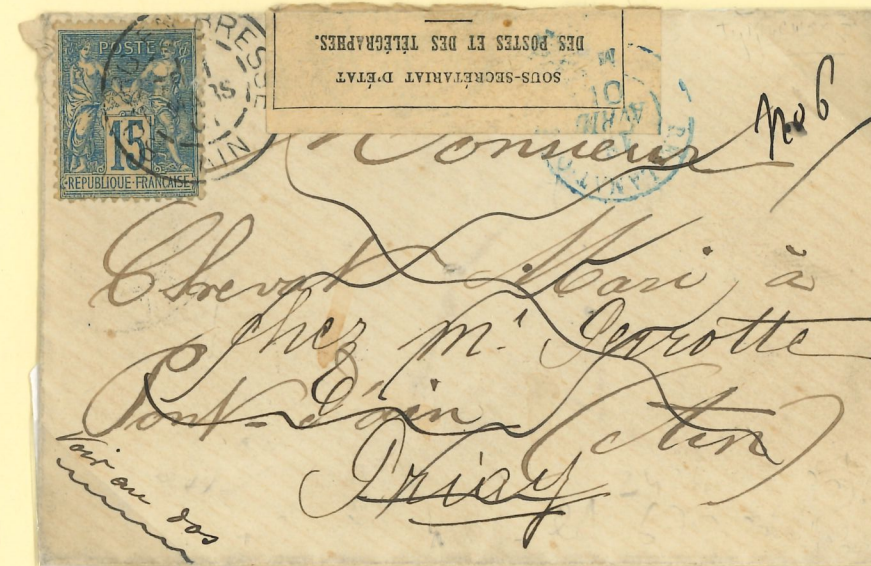 POSTE
15
REPUBLIQUE FRANÇAISE
BRESSE
AIN
SOUS-SECRÉTARIAT D'ÉTAT
DES POSTES ET DES TÉLÉGRAPHES.
RÉCLAMATIONS
No 6
Monsieur
Chevat Mari à
chez Mr Perrotte
Pont-d'ain (Ain)
Priay
Voir au dos